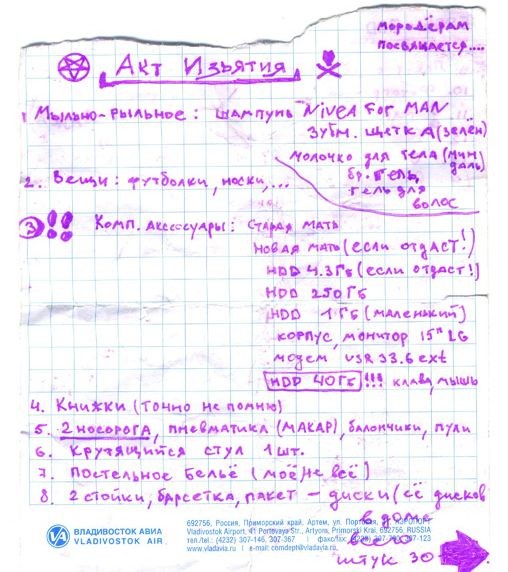 мородёрам
посвящается....
Акт Изъятия
1. Мыльно-рыльное: шампунь Nivea For MAN
зубн. щетка (зелён)
молочко для тела (миндаль)
бр. Гель
гель для
волос
2. Вещи: футболки, носки,...
3 !! Комп. акссесуары: старая мать
новая мать (если отдаст!)
HDD 4.3Гб (если отдаст!)
HDD 250Гб
HDD 1Гб (маленький)
корпус, монитор 15" LG
модем USR 33.6 ext
HDD 40Гб !!! клава, мышь
4. Книжки (точно не помню)
5. 2 носорога, пневматика (МАКАР), балончики, пули
6. Крутящийся стул 1 шт.
7. Постельное бельё (моё, не всё)
8. 2 стойки, барсетка, пакет – диски (её дисков
в доме
всего
штук 30
VA ВЛАДИВОСТОК АВИА
VLADIVOSTOK AIR
692756, Россия, Приморский край, Артем, ул. Портовая, 41, АЭРОПОРТ
Vladivostok Airport, 41 Portovaya Str., Artyom, Primorski Krai, 692756, RUSSIA
тел./tel.: (4232) 307-146, 307-367 | факс/fax: (4232) 307-123
www.vladavia.ru | e-mail: